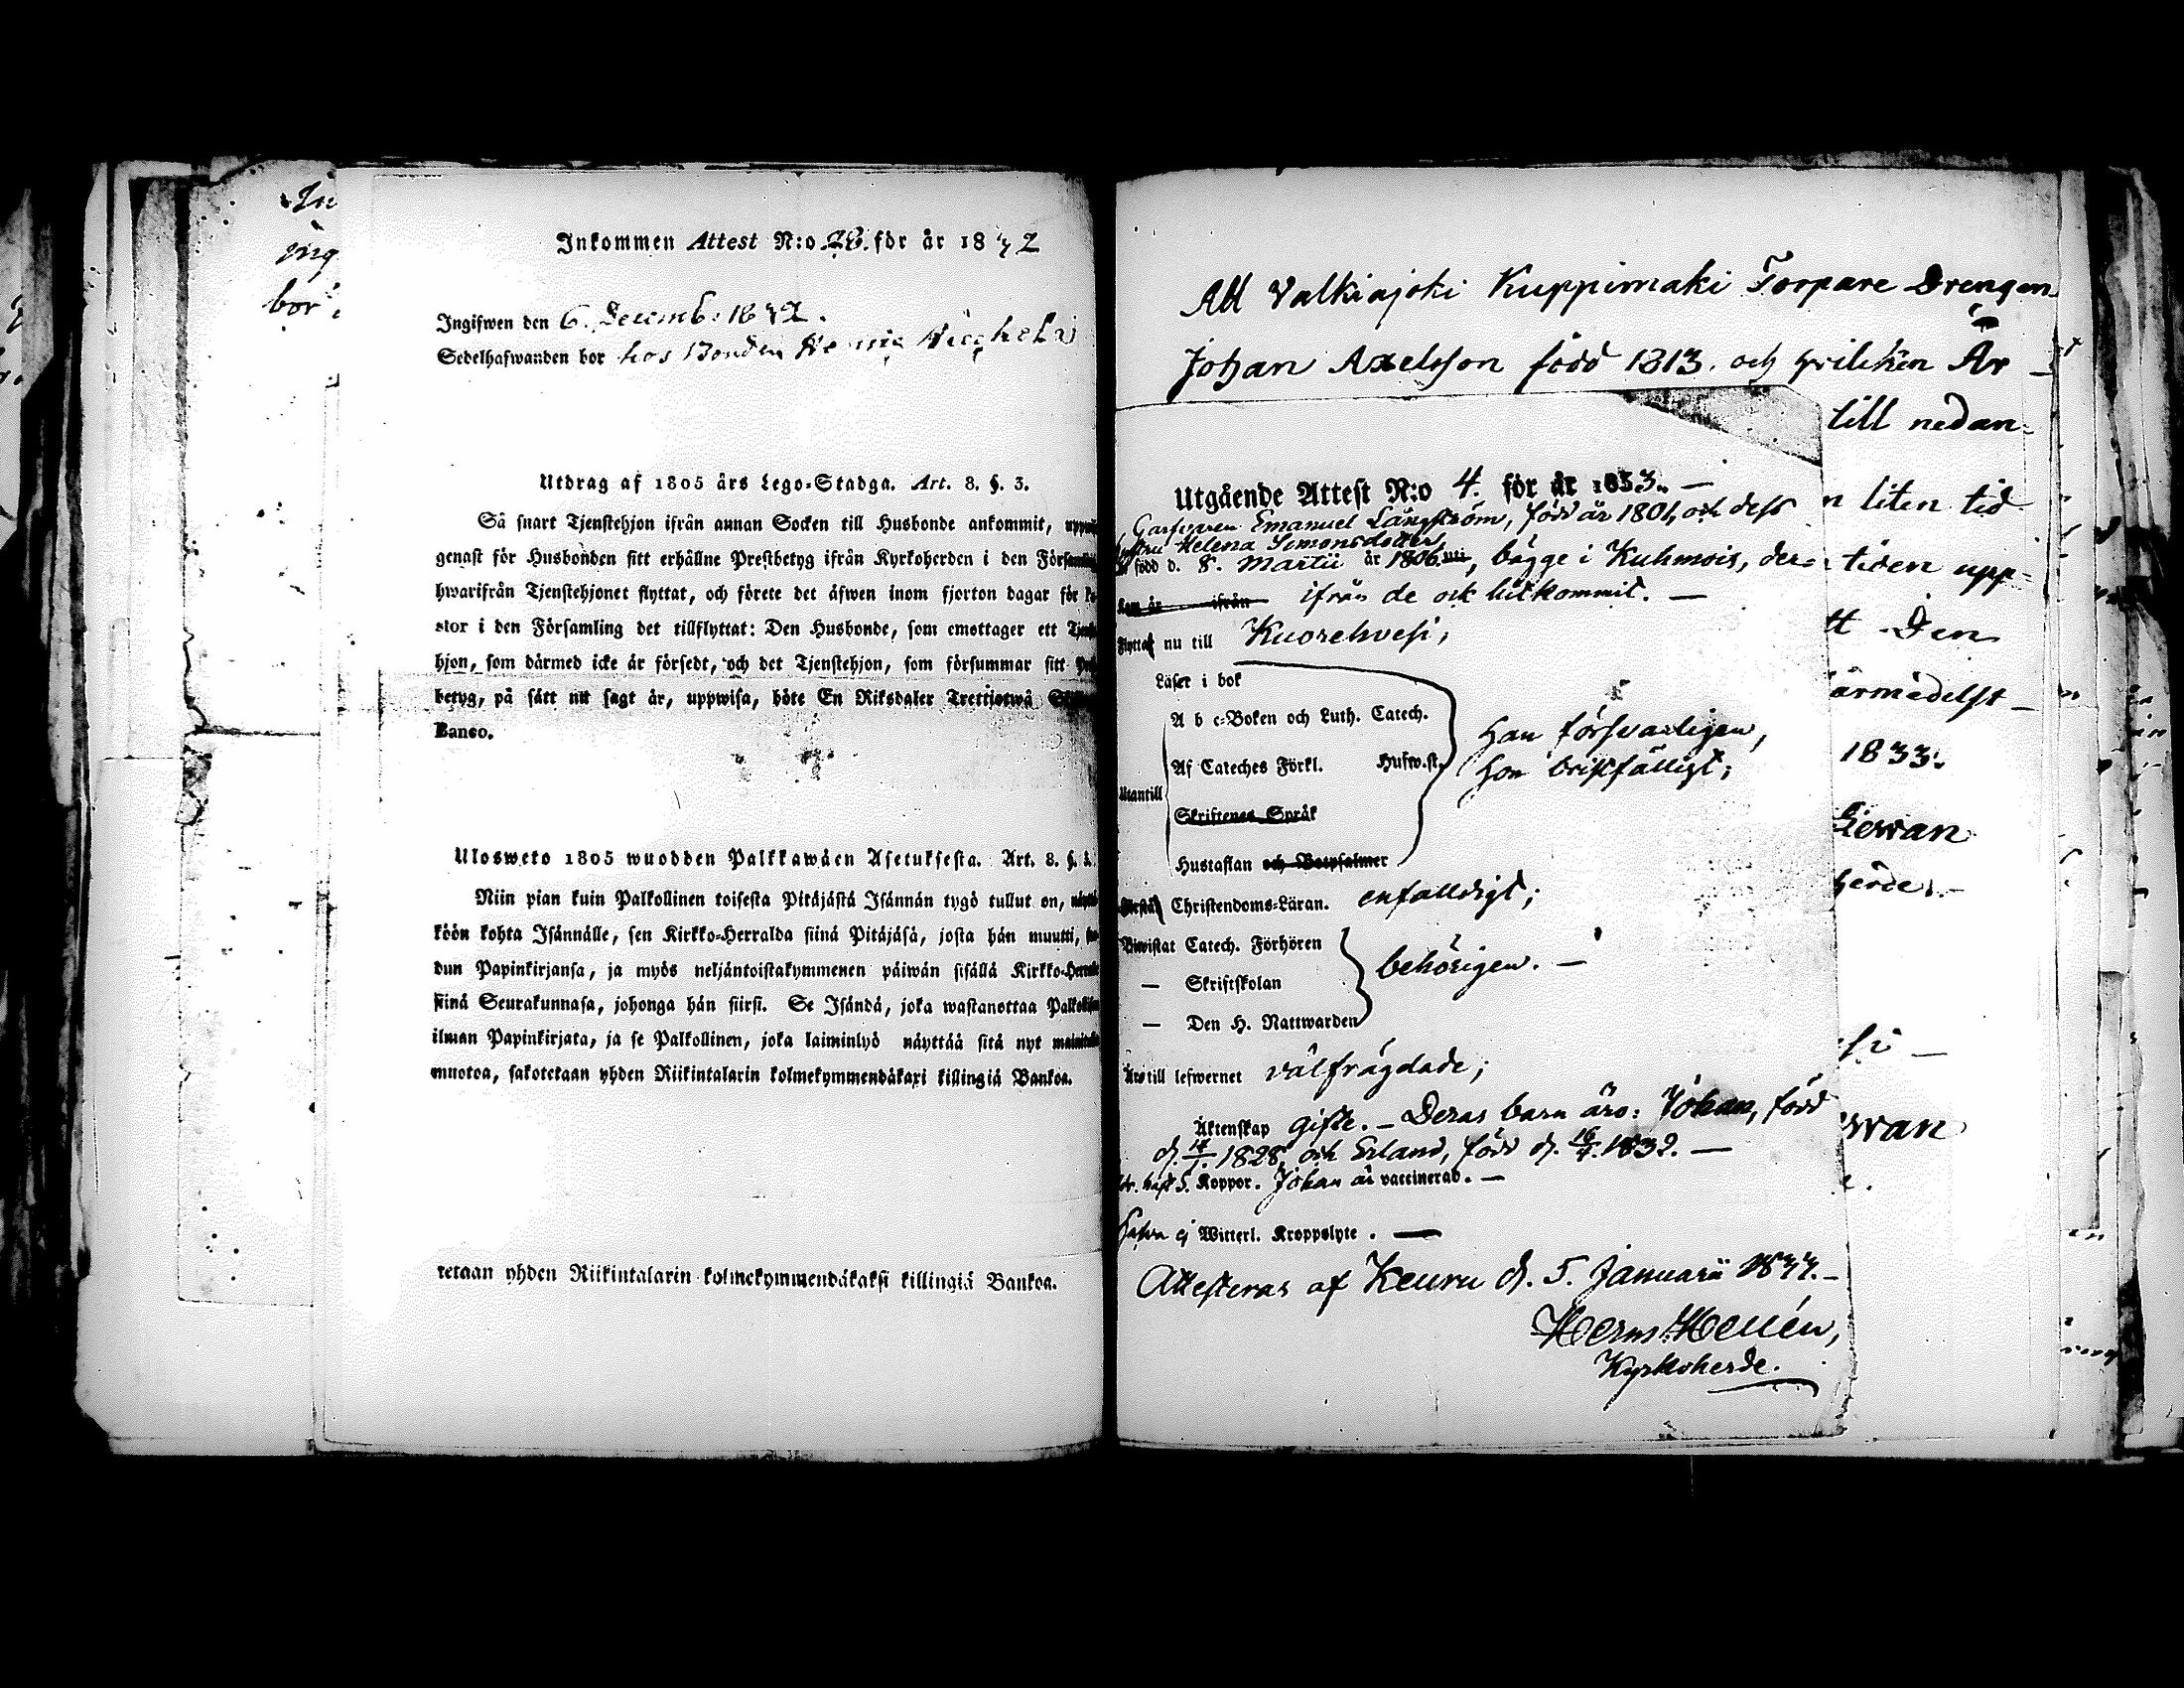 In
ing
bor
Inkommen Attest N:o 28. för år 1832
Ingifwen den 6. Decemb: 1832.
Sedelhafwanden bor hos Bonden
Utdrag af 1805 års Lego-Stadga. Art. 8. §. 3.
Så snart Tjenstehjon ifrån annan Socken till Husbonde ankommit,
genast för Husbonden sitt erhållne Prestbetyg ifrån Kyrkoherden i den
hwarifrån Tjenstehjonet flyttat, och förete det äfwen inom fjorton dagar för
stor i den Församling det tillflyttat: Den Husbonde, som emottager ett
hjon, som därmed icke är försedt, och det Tjenstehjon, som försummar sitt
betyg, på sätt nu sagt är, uppwisa, böte En Riksdaler Trettiotwå
Banco.
Ulosweto 1805 wuodden Palkkawäen Asetuksesta. Art. 8. §. 3.
Niin pian kuin Palkollinen toisesta Pitäjästä Isännän tygö tullut on,
köön kohta Isännälle, sen Kirkko-Herralda siinä Pitäjäsä, josta hän muutti,
dun Papinkirjansa, ja myös neljäntoistakymmenen päiwän sisällä
siinä Seurakunnasa, johonga hän siirsi. Se Isändä, joka wastanottaa
ilman Papinkirjata, ja se Palkollinen, joka laiminlyö näyttää sitä nyt
muotoa, sakotetaan yhden Riikintalarin kolmekymmendäkaxi killingiä Bankoa.
tetaan yhden Riikintalarin kolmekymmendäkaksi killingiä Bankoa.
Att Valkiajoki Kuppimäki Torpare Drengen
Johan Axelsson född 1813. och hvilcken Är
till nedan-
n liten tid
tiden upp-
tt Den
ärmedelst
1833.
herde.
Utgående Attest N:o 4. för år 1833.
Garfvaren Emanuel Långström, född år 1801, och dess
Hustru Helena Simonsdotter,
född d. 8. Martii år 1806. uti, bägge i Kuhmois, der-
Kom år ifrån ifrån de ock hitkommit.
Flyttat nu till Kuorehvesi,
Läser i bok
A b c-Boken och Luth. Catech.
Af Cateches Förkl. Husw.st.
han försvarligen,
hon bristfälligt;
Utantill
Skriftenes Språk
Hustaflan och Botpsalmer
Förstå Christendoms-Läran. enfalldigt;
Biwistat Catech. Förhören
— Skriftskolan
behörigen.
— Den H. Nattwarden
Äro till lefwernet välfrägdade;
Äktenskap gifte. - Deras barn äro: Johan, född
d. 14/1. 1828, och Erland, född d. 16/4. 1832.
haft S. Koppor. Johan är vaccinerad.
Hafva ej Witterl. Kroppslyte.
Attesteras af Keuru d. 5. Januarii 1833.
Herm: Hellén,
Kyrkoherde.